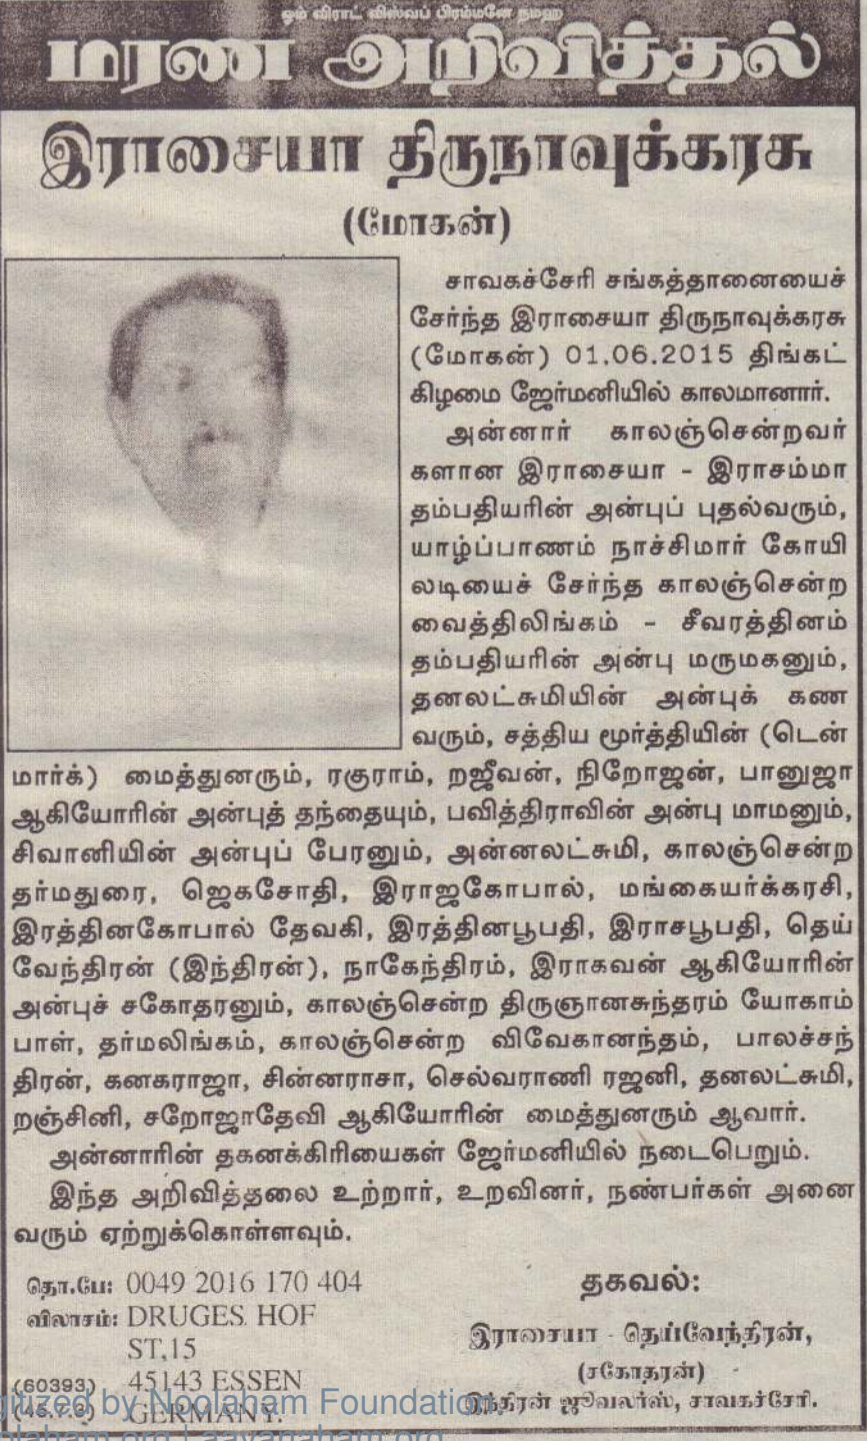 ஓம் விராட் விஸ்வப் பிரம்மனே நமஹ
மரண அறிவித்தல்
இராசையா திருநாவுக்கரசு
(மோகன்)
சாவகச்சேரி சங்கத்தானையைச்
சேர்ந்த இராசையா திருநாவுக்கரசு
(மோகன்) 01.06.2015 திங்கட்
கிழமை ஜேர்மனியில் காலமானார்.
அன்னார் காலஞ்சென்றவர்
களான இராசையா - இராசம்மா
தம்பதியரின் அன்புப் புதல்வரும்,
யாழ்ப்பாணம் நாச்சிமார் கோயி
லடியைச் சேர்ந்த காலஞ்சென்ற
வைத்திலிங்கம் - சீவரத்தினம்
தம்பதியரின் அன்பு மருமகனும்,
தனலட்சுமியின் அன்புக் கண
வரும், சத்திய மூர்த்தியின் (டென்
மார்க்) மைத்துனரும், ரகுராம், றஜீவன், நிறோஜன், பானுஜா
ஆகியோரின் அன்புத் தந்தையும், பவித்திராவின் அன்பு மாமனும்,
சிவானியின் அன்புப் பேரனும், அன்னலட்சுமி, காலஞ்சென்ற
தர்மதுரை, ஜெகசோதி, இராஜகோபால், மங்கையர்க்கரசி,
இரத்தினகோபால் தேவகி, இரத்தினபூபதி, இராசபூபதி, தெய்
வேந்திரன் (இந்திரன்), நாகேந்திரம், இராகவன் ஆகியோரின்
அன்புச் சகோதரனும், காலஞ்சென்ற திருஞானசுந்தரம் யோகாம்
பாள், தர்மலிங்கம், காலஞ்சென்ற விவேகானந்தம், பாலச்சந்
திரன், கனகராஜா, சின்னராசா, செல்வராணி ரஜனி, தனலட்சுமி,
றஞ்சினி, சறோஜாதேவி ஆகியோரின் மைத்துனரும் ஆவார்.
அன்னாரின் தகனக்கிரியைகள் ஜேர்மனியில் நடைபெறும்.
இந்த அறிவித்தலை உற்றார், உறவினர், நண்பர்கள் அனை
வரும் ஏற்றுக்கொள்ளவும்.
தொ.பே: 0049 2016 170 404
விலாசம்: DRUGES. HOF
ST,15
45143 ESSEN
GERMANY.
(60393)
தகவல்:
இராசையா - தெய்வேந்திரன்,
(சகோதரன்)
இந்திரன் ஜுவலர்ஸ், சாவகச்சேரி.
gitized by Noolaham Foundation.
olaham.org | aavanaham.org